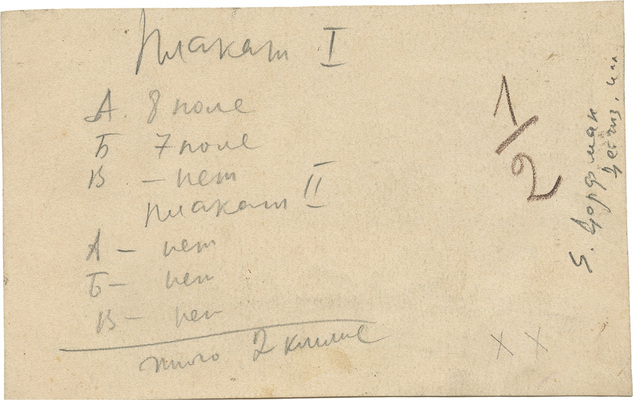 Плакат I
А. 8 поле
Б 7 поле
В – нет
плакат II
А – нет
Б – нет
В – нет
итого 2 клише
1/2
Дорфман
х х